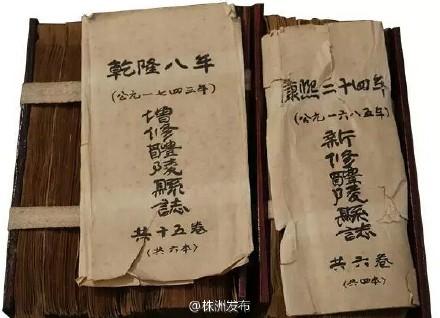 乾隆八年
(公元一七四三年)
增修醴陵縣誌
共十五卷
(共六本)
康熙二十四年
(公元一六八五年)
新修醴陵縣誌
共六卷
(共四本)
@株洲发布